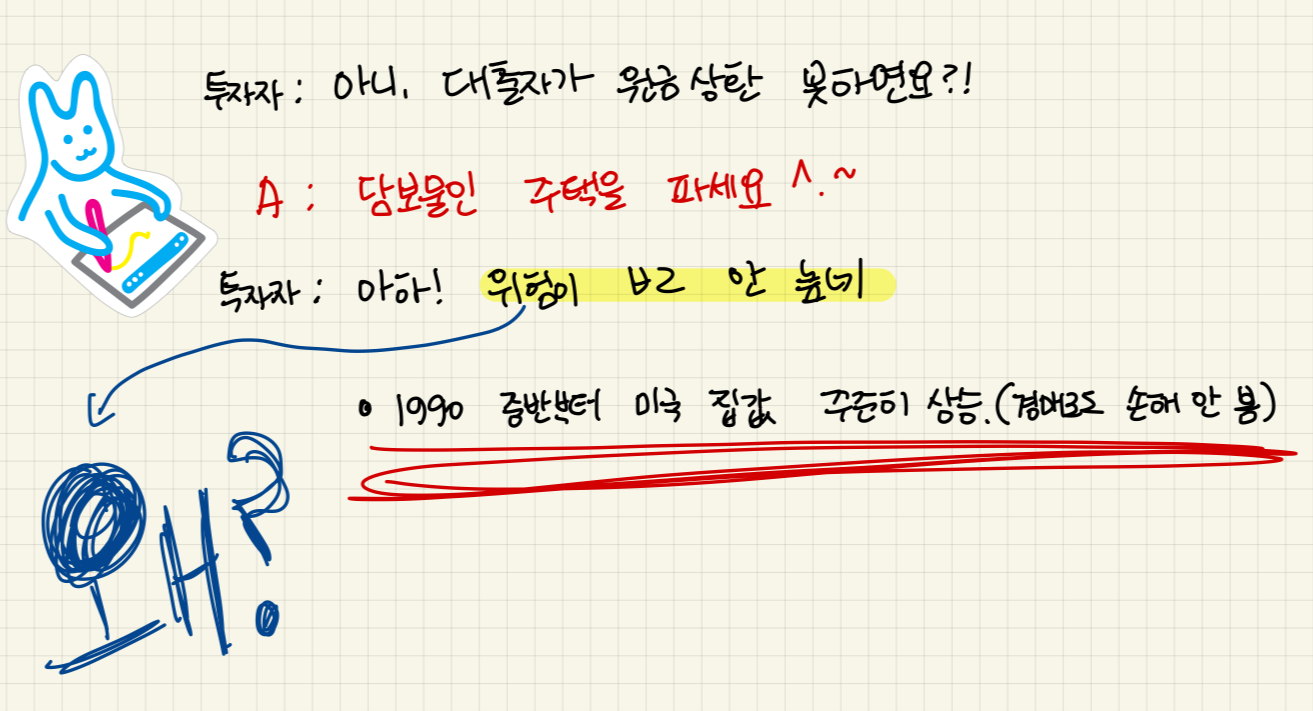 투자자 : 아니, 대출자가 원금 상환 못하면요?!
A : 담보물인 주택을 파세요 ^.~
투자자 : 아하! 위험이 별로 안 높네
• 1990 중반부터 미국 집값 꾸준히 상승. (경매로도 손해 안 봄)
왜?